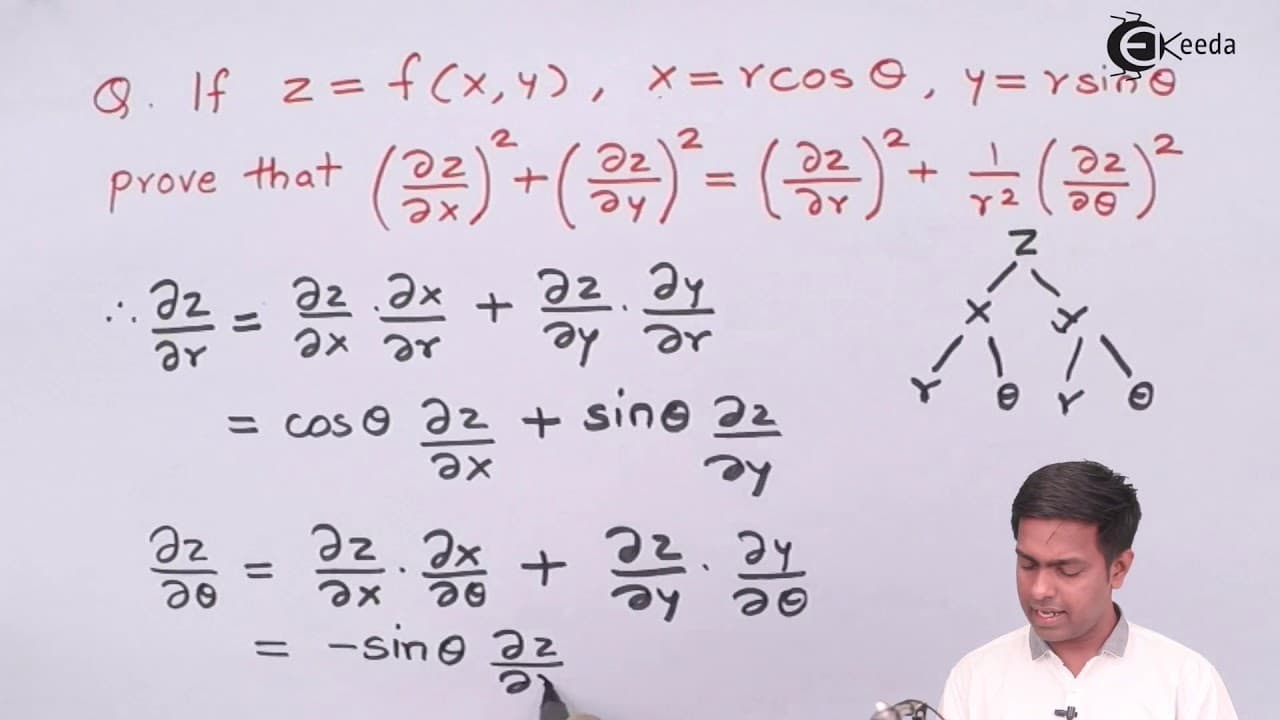 Keeda
Q. If z = f(x, y), x = r cos θ, y = r sin θ
prove that (∂z/∂x)² + (∂z/∂y)² = (∂z/∂r)² + 1/r² (∂z/∂θ)²
z
x y
r θ r θ
∴ ∂z/∂r = ∂z/∂x · ∂x/∂r + ∂z/∂y · ∂y/∂r
= cos θ ∂z/∂x + sin θ ∂z/∂y
∂z/∂θ = ∂z/∂x · ∂x/∂θ + ∂z/∂y · ∂y/∂θ
= -sin θ ∂z/∂